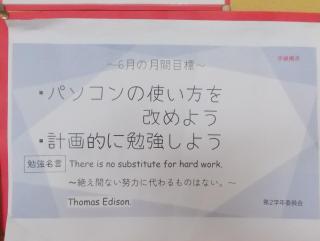 ～6月の月間目標～
・パソコンの使い方を
改めよう
・計画的に勉強しよう
勉強名言 There is no substitute for hard work.
～絶え間ない努力に代わるものはない。～
Thomas Edison.
第2学年委員会